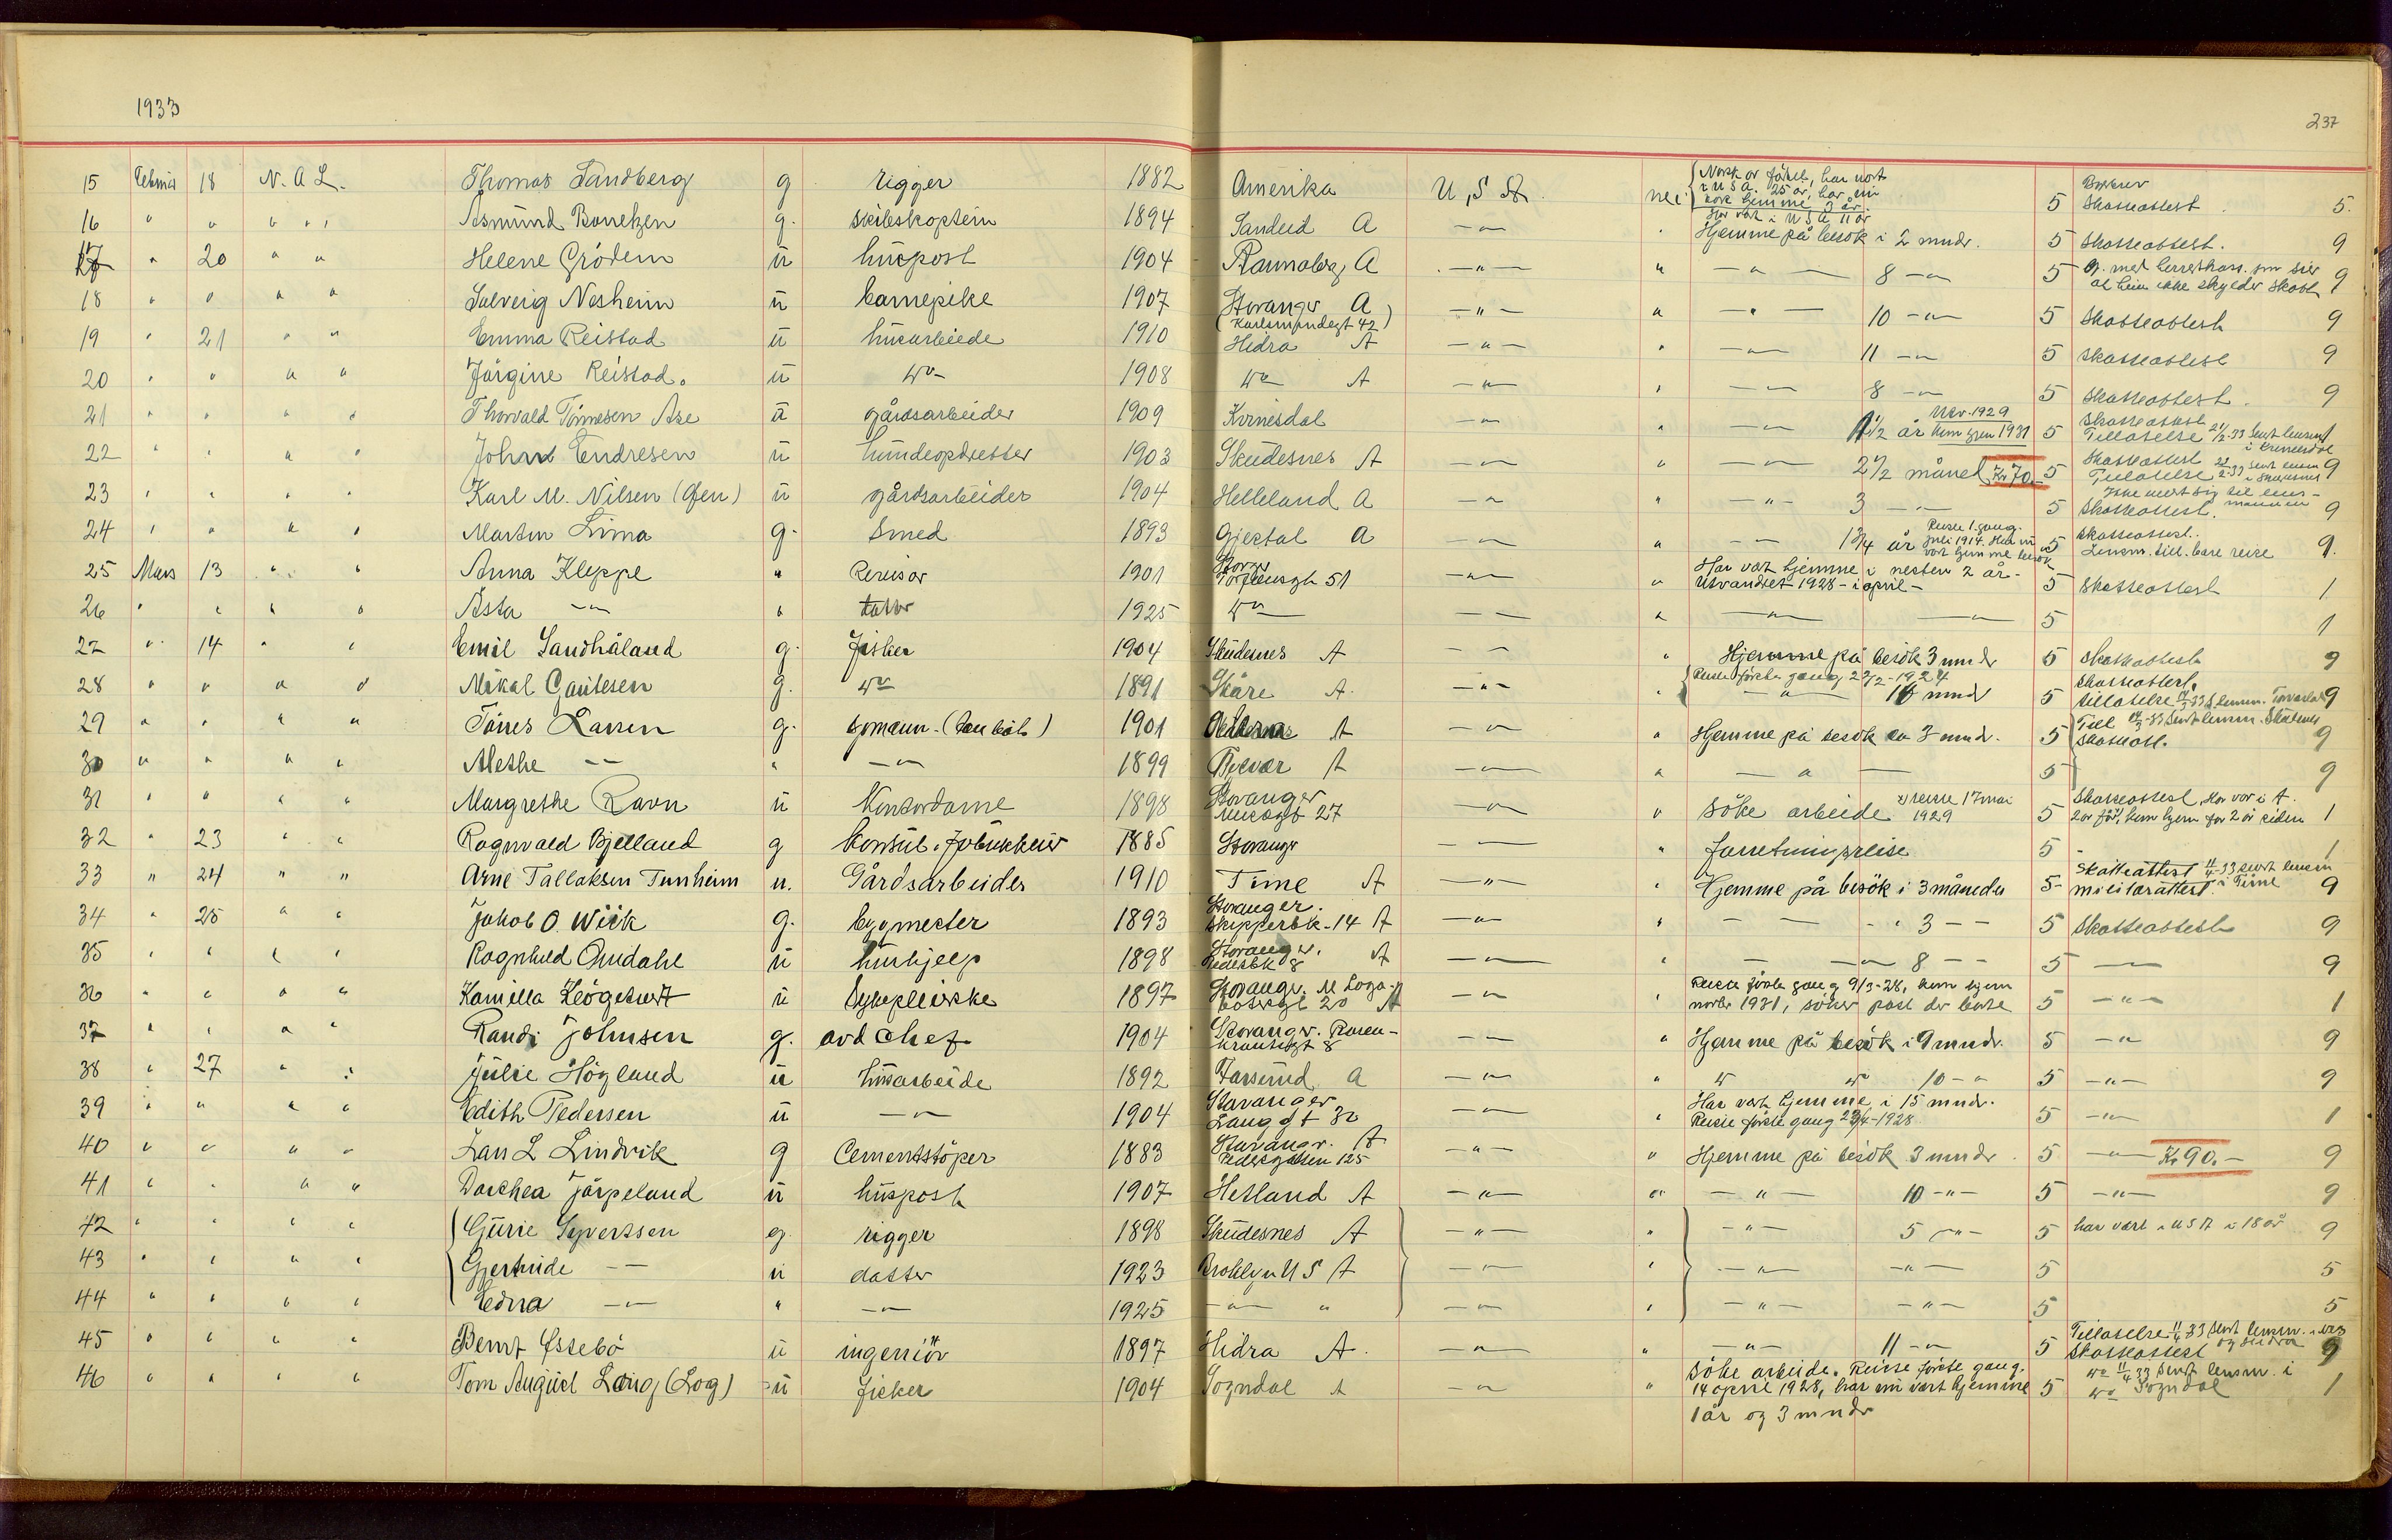 1933
237
15 Februar 18 N. A. L. Thomas Sandberg g rigger 1882 Amerika U, S St. nei Norsk av fødsel, har vært i U S A. 25 år, har nu vært hjemme 3 år. 5 Skatteattest 5.
16 " " " " Asmund g. skibskaptein 1894 Sandeid A —"— " Har vært i U S A 11 år Hjemme på besök i 2 mndr. 5 Skatteattest. 9
17 " 20 " " Helene Grödem u huspost 1904 A —"— " —"— 8 —"— 5 at hun ikke skylder skatt 9
18 " " " " Solveig Nesheim u barnepike 1907 Stavanger A (Karlsmindegt 42) —"— " —"— 10 —"— 5 Skatteattest 9
19 " 21 " " Emma Reistad u husarbeide 1910 Hidra A —"— " —"— 11 —"— 5 Skatteattest 9
20 " " " " Jörgine Reistad. u do 1908 do A —"— " —"— 8 —"— 5 Skatteattest. 9
21 " " " " Thorvald Tönnesen Åse u gårdsarbeider 1909 Kvinesdal —"— " —"— 1 1/2 år Utv. 1929 kom hjem 1931 5 Skatteattest Tillatelse 21/2-33 sendt lensm i Kvinesdal
22 " " " " John Endresen u hundeopdretter 1903 Skudesnes A —"— " —"— 2 1/2 måned Kr 70.— 5 Skatteattest Tillatelse 22/2-33 sendt lensm i Skudesnes 9
23 " " " " Karl M. Nilsen u gårdsarbeider 1904 Helleland A —"— " —"— 3 —"— 5 Ikke meldt sig til lensmannen Skatteattest. 9
24 " " " " Martin Lima g. Smed 1893 Gjestal A —"— " —"— 1 3/4 år Reiste 1. gang. juli 1914. Har nu vært hjemme besök 5 Skatteattest. Lensm. till. bare reise 9.
25 Mars 13 " " Anna Kleppe " Revisor 1901 Stvgr 51 —"— " Har vært hjemme i nesten 2 år. Utvandret 1928 - i april - 5 Skatteattest 1
26 " " " " Åsta —"— " datter 1925 do —"— " —"— —"— 5 1
27 " 14 " " Emil Sandhåland g. Fisker 1904 Skudesnes A —"— " Hjemme på besök 3 mndr 5 Skatteattest 9
28 " " " " Mikal Gautesen g. do 1891 Skåre A. —"— " Reiste förste gang 22/2-1924 —"— mndr 5 Skatteattest. tillatelse 9
29 " " " " Tönes Larsen g. sjömann 1901 A —"— " Hjemme på besök ca 3 mndr. 5 Till sendt lensm. Skudenes Skatteatt. 9
30 " " " " Alethe —"— " —"— 1899 A —"— " —"— 5 9
31 " " " " Margrethe Ravn u Kontordame 1898 Stavanger 27 —"— " Söke arbeide reiste 17 mai 1929 5 Skatteattest, Har vær i A. 2 år før, kom hjem for 2 år siden 1
32 " 23 " " Ragnvald Bjelland g Konsul, 1885 Stavanger —"— " Forretningsreise 5 1
33 " 24 " " Arne Tallaksen Tunheim u. Gårdsarbeider 1910 Time A —"— " Hjemme på besök i 3 måneder 5 Skatteattest 11/4-33 sendt lensm militærattest i Time 9
34 " 25 " " Jakob O. Wiik g. bygmester 1893 Stavanger. Skipperbk. 14 A —"— " — — 3 — — 5 Skatteattest 9
35 " " " " Ragnhild Omdahl u hushjelp 1898 Stavanger. 8 A —"— " — —"— 8 — — 5 —"— 9
36 " " " " Kamilla u Sykepleierske 1897 Stavanger. 20 A —"— " Reiste förste gang 9/3-28, kom hjem novbr 1931, söker post der borte 5 —"— 1
37 " " " " Randi Johnsen g. avd chef 1904 Stavanger. Rosenkrantzgt 8 —"— " Hjemme på besök i 9 mndr. 5 —"— 9
38 " 27 " " Julie Högland u husarbeide 1892 Farsund A —"— " do do 10 —"— 5 —"— 9
39 " " " " Edith Pedersen u —"— 1904 Stavanger Langgt 30 —"— " Har vært hjemme i 15 mndr. Reiste förste gang 23/4-1928 5 —"— 1
40 " " " " Lars L Lindvik g Cementstöper 1883 Stavangr. A Pedersgaten 125 —"— " Hjemme på besök 3 mndr. 5 —"— Kr 90.— 9
41 " " " " Dorthea Jörpeland u huspost 1907 Hetland A —"— " —"— 10 —"— 5 —"— 9
42 " " " " Gurie Syvertsen g. rigger 1898 Skudesnes A —"— " —"— 5 —"— 5 har vært i U S A i 18 år 9
43 " " " " Gjertrude —"— u datter 1923 Broklyn U S A —"— " —"— —"— 5 5
44 " " " " Edna —"— " —"— 1925 —"— " —"— " —"— —"— 5 5
45 " " " " Bernt Østebö u ingeniör 1897 Hidra A. —"— " —"— 11 —"— 5 Tillatelse 11/4 33 sendt lensm. Skatteattest og Hidra 9
46 " " " " Tom August Log (Log) u fisker 1904 Sogndal A —"— " Söke arbeide. Reiste förste gang. 14 april 1928, har nu vært hjemme 5 do 11/4 33 sendt lensm. i do Sogndal 1
1 år og 3 mndr